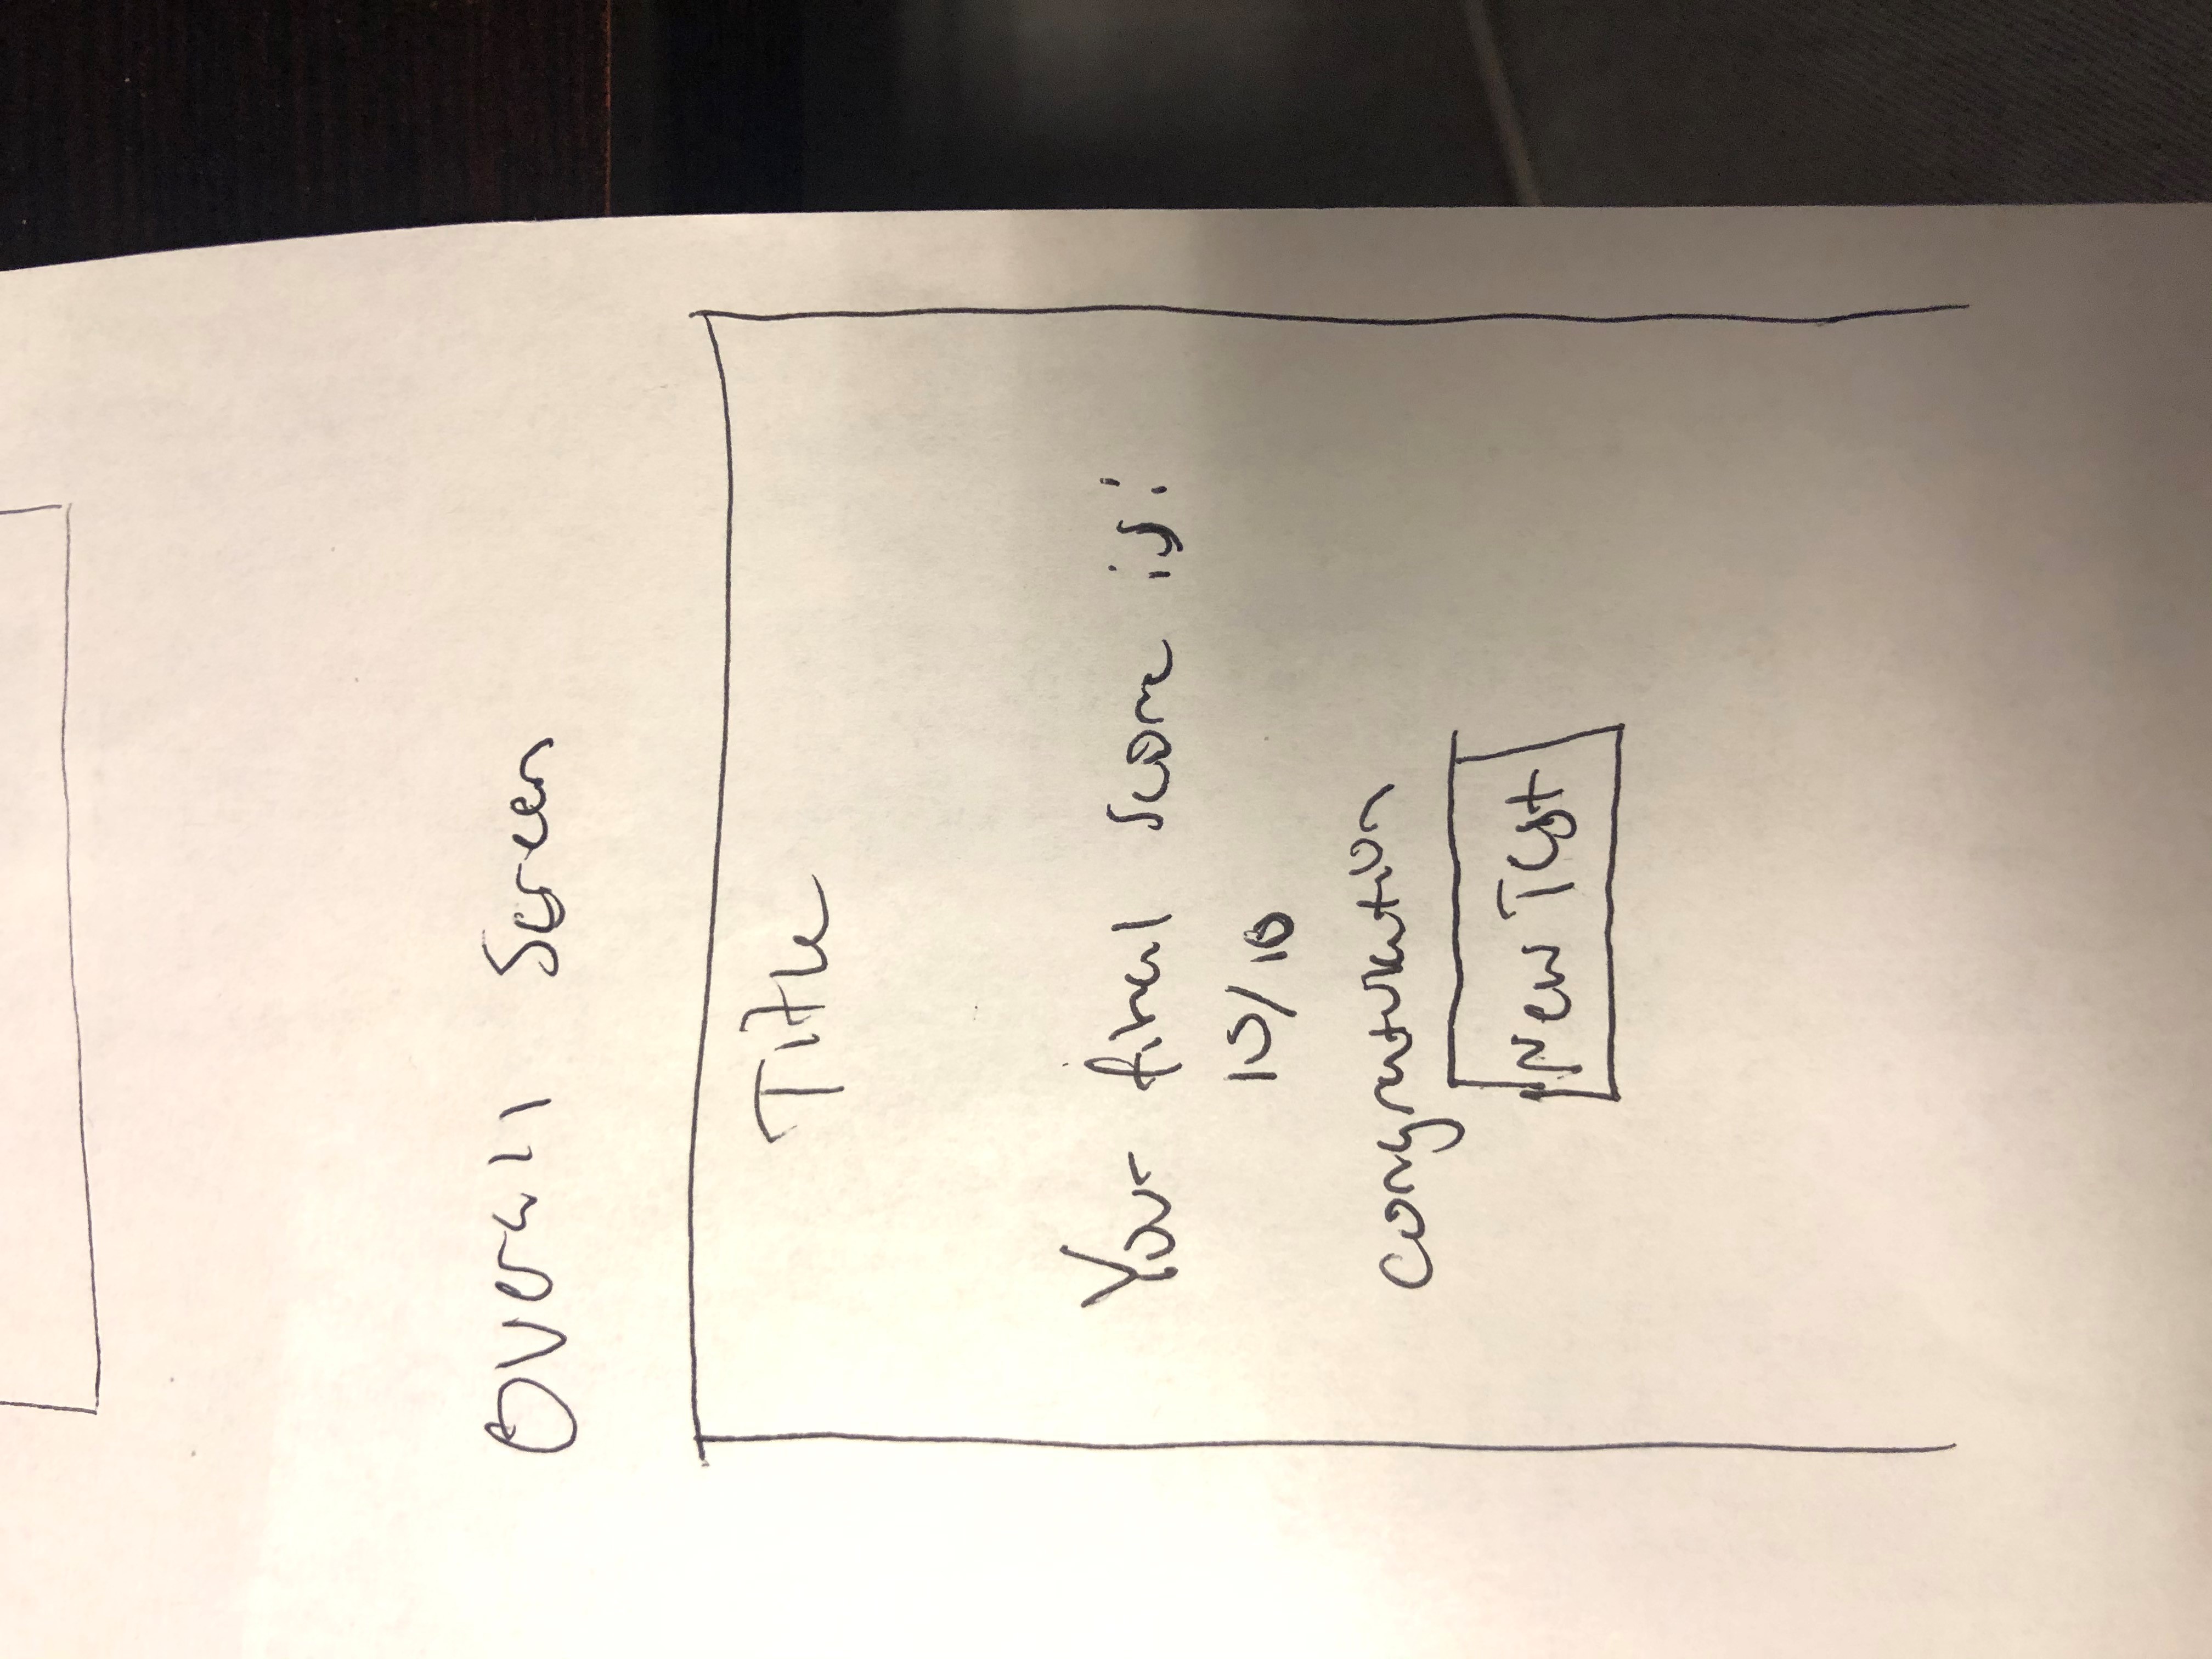 Overall Screen
Title
Your final score is:
10/10
congratulation
New Test